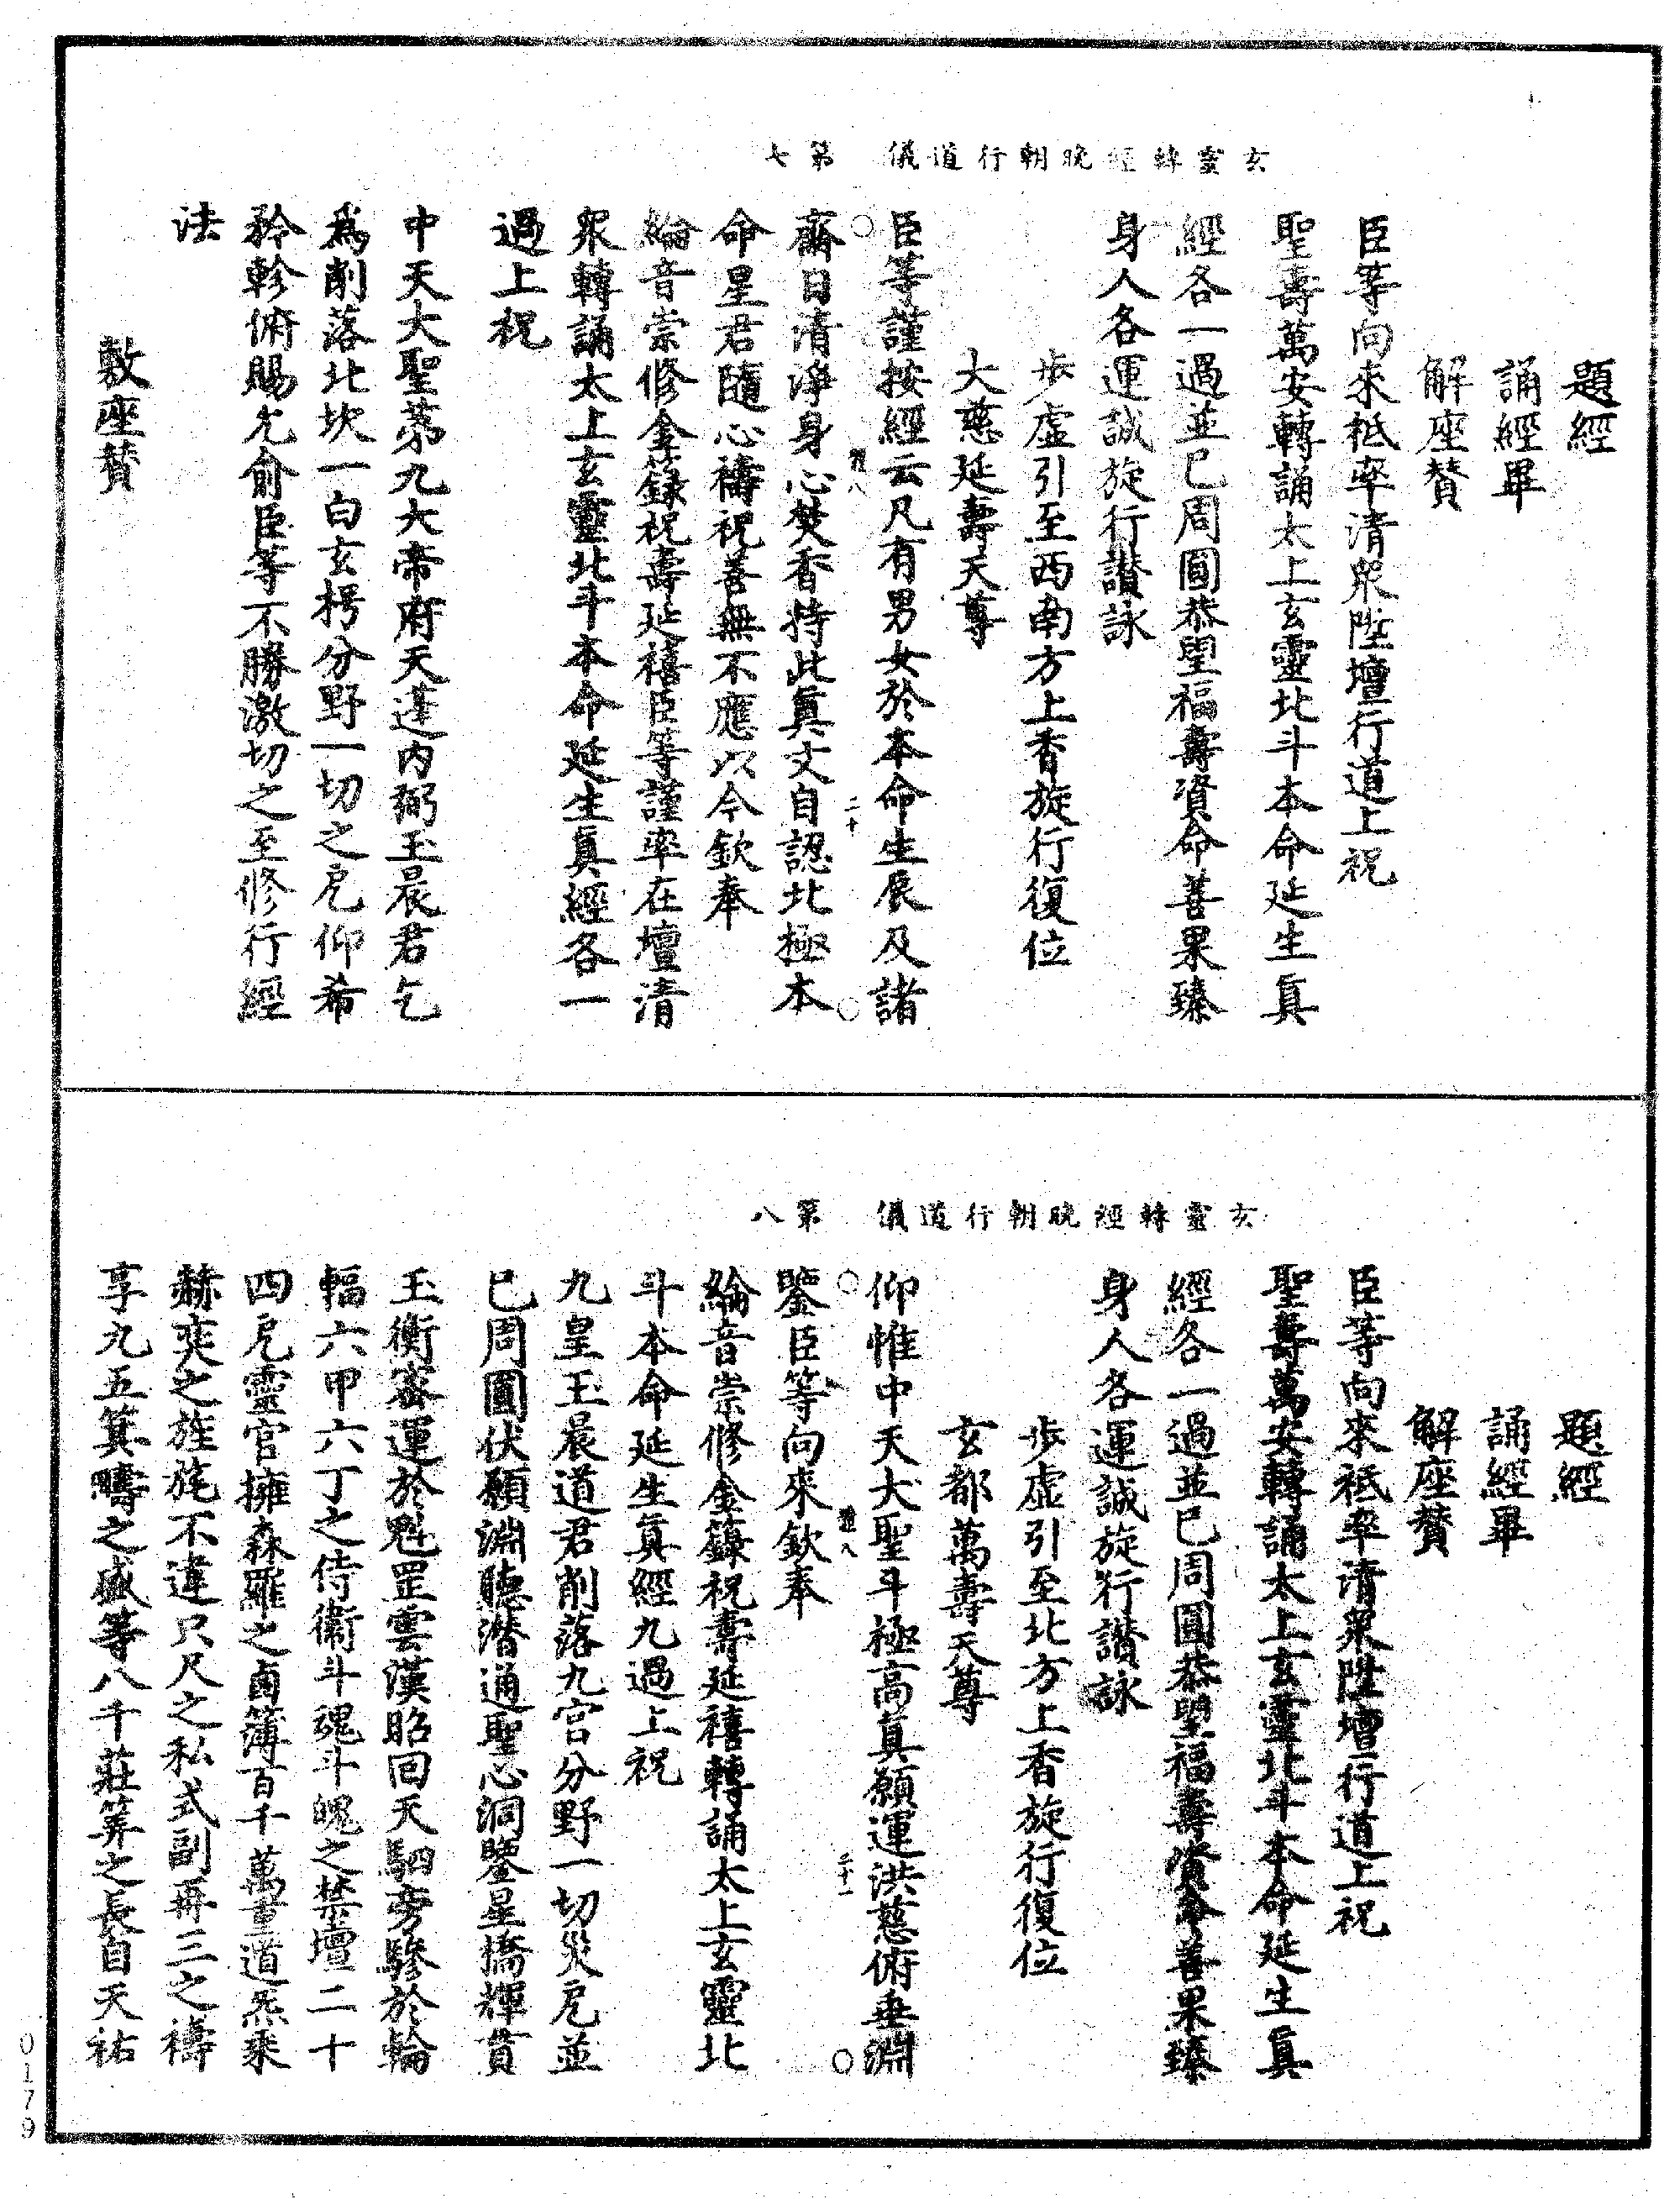 玄靈轉經晚朝行道儀　第七
題經
誦經畢
解座贊
臣等向來祗率清眾陞壇行道上祝
聖壽萬安轉誦太上玄靈北斗本命延生真
經各一過並已周圓恭望福壽資命善果臻
身人各運誠旋行讚詠
步虛引至西南方上香旋行復位
大慈延壽天尊
臣等謹按經云凡有男女於本命生辰及諸
齋日清淨身心焚香持此真文自認北極本
命星君隨心禱祝善無不應以今欽奉
綸音崇修金籙祝壽延禧臣等謹率在壇清
眾轉誦太上玄靈北斗本命延生真經各一
過上祝
中天大聖第九大帝府天蓬內弼玉晨君乞
為削落北坎一白玄枵分野一切之厄仰希
矜軫俯賜允俞臣等不勝激切之至修行經
法
敷座贊
玄靈轉經晚朝行道儀　第八
題經
誦經畢
解座贊
臣等向來祗率清眾陞壇行道上祝
聖壽萬安轉誦太上玄靈北斗本命延生真
經各一過並已周圓恭望福壽資命善果臻
身人各運誠旋行讚詠
步虛引至北方上香旋行復位
玄都萬壽天尊
仰惟中天大聖斗極高真願運洪慈俯垂淵
鑒臣等向來欽奉
綸音崇修金籙祝壽延禧轉誦太上玄靈北
斗本命延生真經九過上祝
九皇玉晨道君削落九宮分野一切災厄並
已周圓伏願淵聽潛通聖心洞鑒星橋輝貫
玉衡密運於魁罡雲漢昭回天駟旁驂於輪
輻六甲六丁之侍衛斗魂斗魄之禁壇二十
四厄靈官擁森羅之鹵簿百千萬重道炁乘
赫奕之旌旄不違只尺之私式副再三之禱
享九五箕疇之盛等八千莊筭之長自天祐
0179